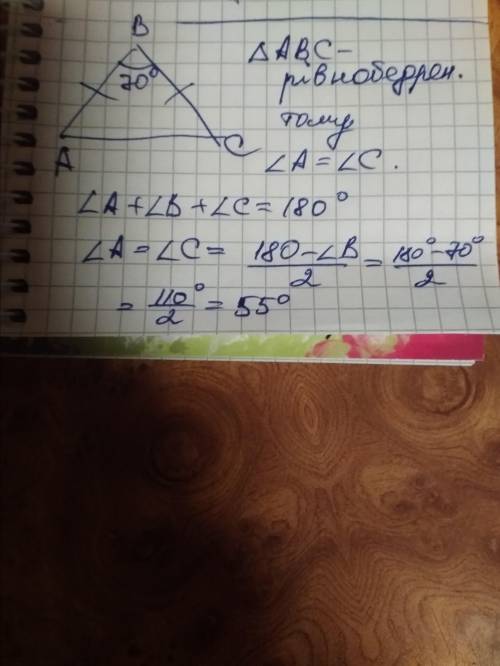 B
70°
A
C
△ABC -
рівнобедрен.
тому
∠A = ∠C.
∠A + ∠B + ∠C = 180°
∠A = ∠C = (180 - ∠B)/2 = (180° - 70°)/2
= 110°/2 = 55°